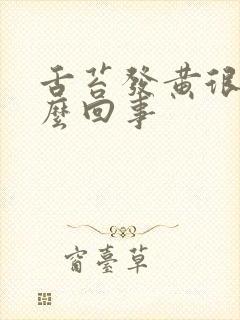 舌苔發黃很
麼回事
窗臺草